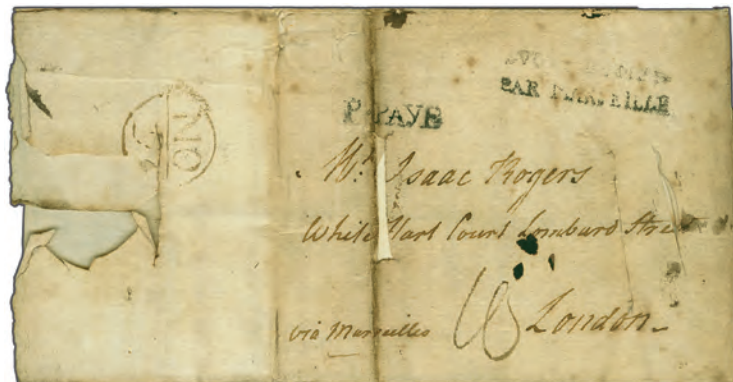 PAR MARSEILLE
P.PAYE
Mr. Isaac Rogers
White Hart Court Lombard Street
via Marseilles
London